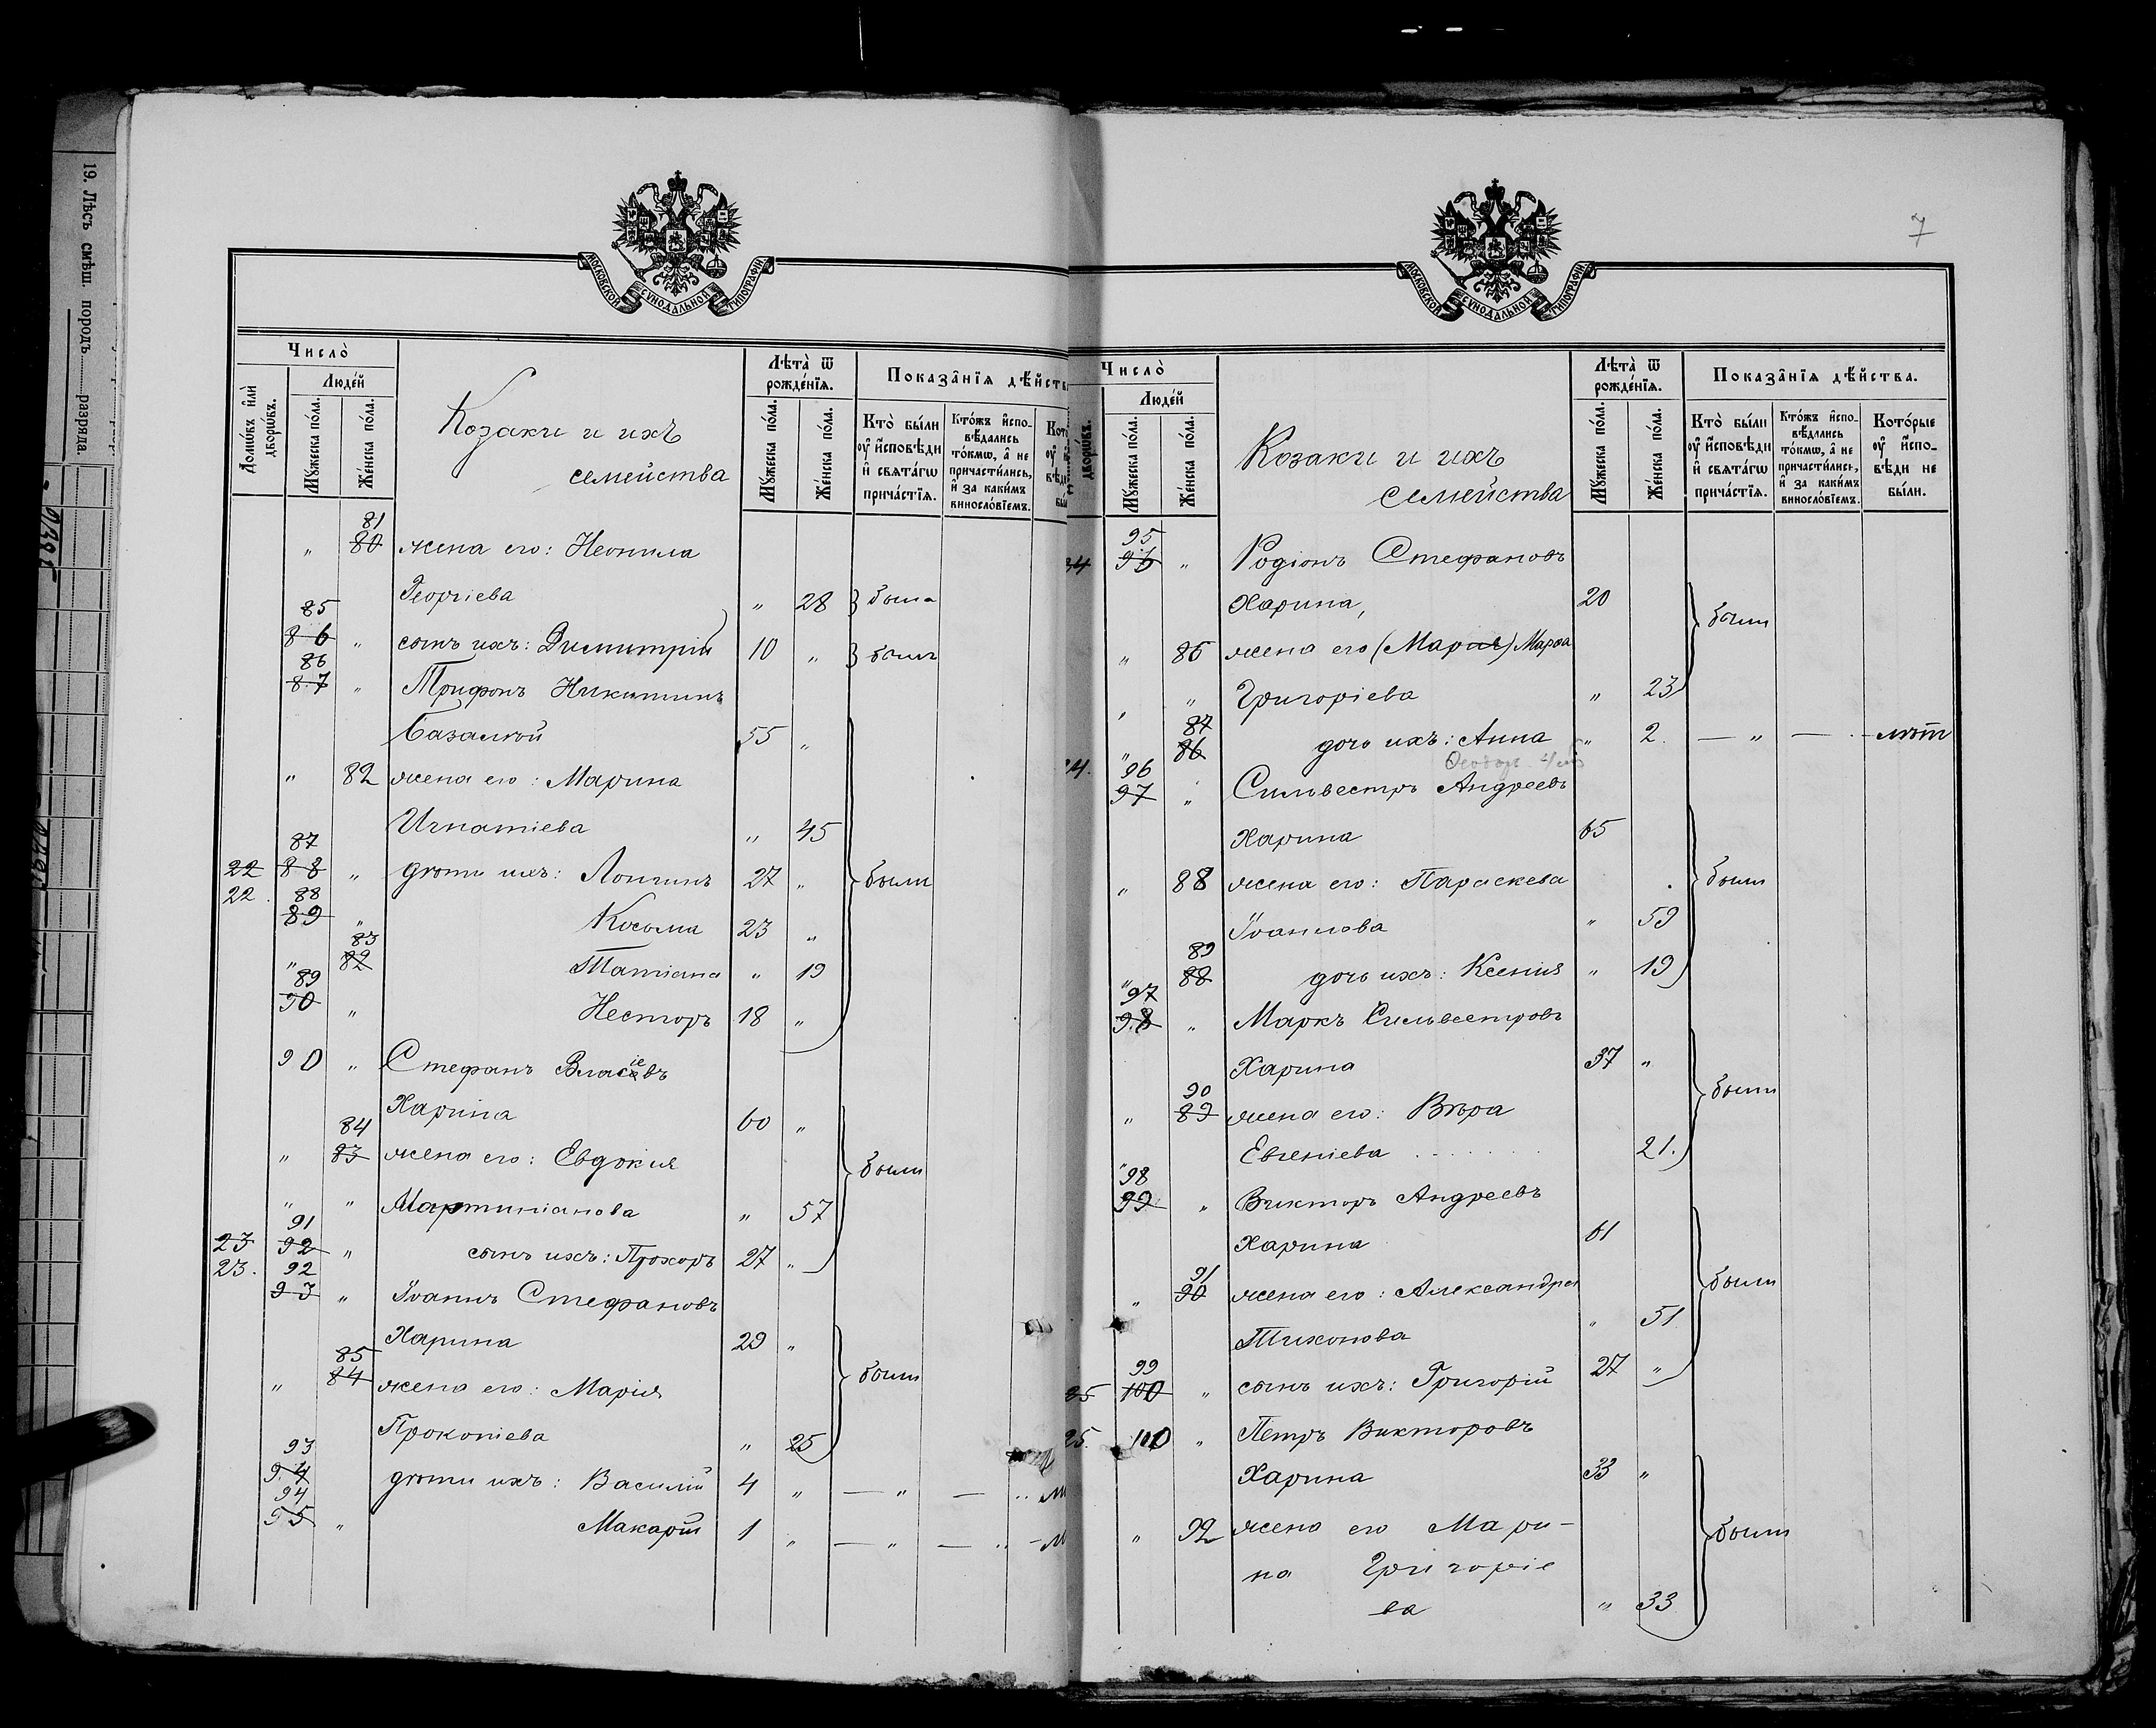 19. Лѣсъ смѣш. породъ разряда.
МОСКОВСКОЙ СѴНОДАЛЬНОЙ ТИПОГРАФІИ
Число̀
Домѡ́въ и҆лѝ дворѡ́въ.
Люде́й
Мꙋ́жеска по́ла.
Же́нска по́ла.
Козаки и ихъ
семейства
Лѣта̀ ѿ рожде́нїѧ.
Мꙋ́жеска по́ла.
Же́нска по́ла.
Показа̑нїѧ дѣ́йства
Кто̀ бы́ли ᲂу҆ и҆́сповѣди и҆ свѧта́гѡ прича́стїѧ.
Кто́жъ и҆спо-вѣ́дались то́кмѡ, а҆ не причасти́лись, и҆ за каки́мъ винословїемъ.
81
" 80 жена его: Неонила
Георгіева " 28 была
85
86 " сынъ ихъ: Димитрій 10 " былъ
86
87 " Трифонъ Никитинъ
Базалѣй 55 "
" 82 жена его: Марина
Игнатіева " 45
87
22 88 " дѣти ихъ: Лонгинъ 27 " были
22. 88
89 " Косьма 23 "
83
" 82 Татіана " 19
89
90 " Несторъ 18 "
90 " Стефанъ Власіевъ
Харина 60 "
84
" 83 жена его: Евдокия были
" " Мартиніанова " 57
91
23 92 " сынъ ихъ: Прохоръ 27 "
23. 92
93 " Іоаннъ Стефановъ
Харина 29 "
85
" 84 жена его: Марія были
Прокопіева " 25
93
94 дѣти ихъ: Василій 4 " — " —
94
95 " Макарій 1 " — " —
7
МОСКОВСКОЙ СѴНОДАЛЬНОЙ ТИПОГРАФІИ
Число̀
дворѡ́въ.
Люде́й
Мꙋ́жеска по́ла.
Же́нска по́ла.
Козаки и ихъ
семейства
Лѣта̀ ѿ рожде́нїѧ.
Мꙋ́жеска по́ла.
Же́нска по́ла.
Показа̑нїѧ дѣ́йства.
Кто̀ бы́ли ᲂу҆ и҆́сповѣди и҆ свѧта́гѡ прича́стїѧ.
Кто́жъ и҆спо-вѣ́дались то́кмѡ, а҆ не причасти́лись, и҆ за каки́мъ винословїемъ.
Кото́рые ᲂу҆ и҆́спо-вѣди не бы́ли.
95
96 " Родіонъ Стефановъ
Харина, 20 были
" 86 жена его (Марія) Марѳа
" " Григоріева " 23
87
" 86 дочь ихъ: Анна " 2. — " — лѣт
96
97 " Сильвестръ Андреевъ
Харина 65
" 88 жена его: Параскева были
Іоаннова " 59
89
" 88 дочь ихъ: Ксенія " 19
97
98 " Маркъ Сильвестровъ
Харина 37 "
90
" 89 жена его: Вѣра были
Евгеніева 21.
98
99 " Викторъ Андреевъ
Харина 61
91
" 90 жена его: Александра были
Тихонова " 51
99
25 100 " сынъ ихъ: Григорій 27 "
25. 100 " Петръ Викторовъ
Харина 33 "
" 92 жена его Мари- были
на Григоріе
ва " 33